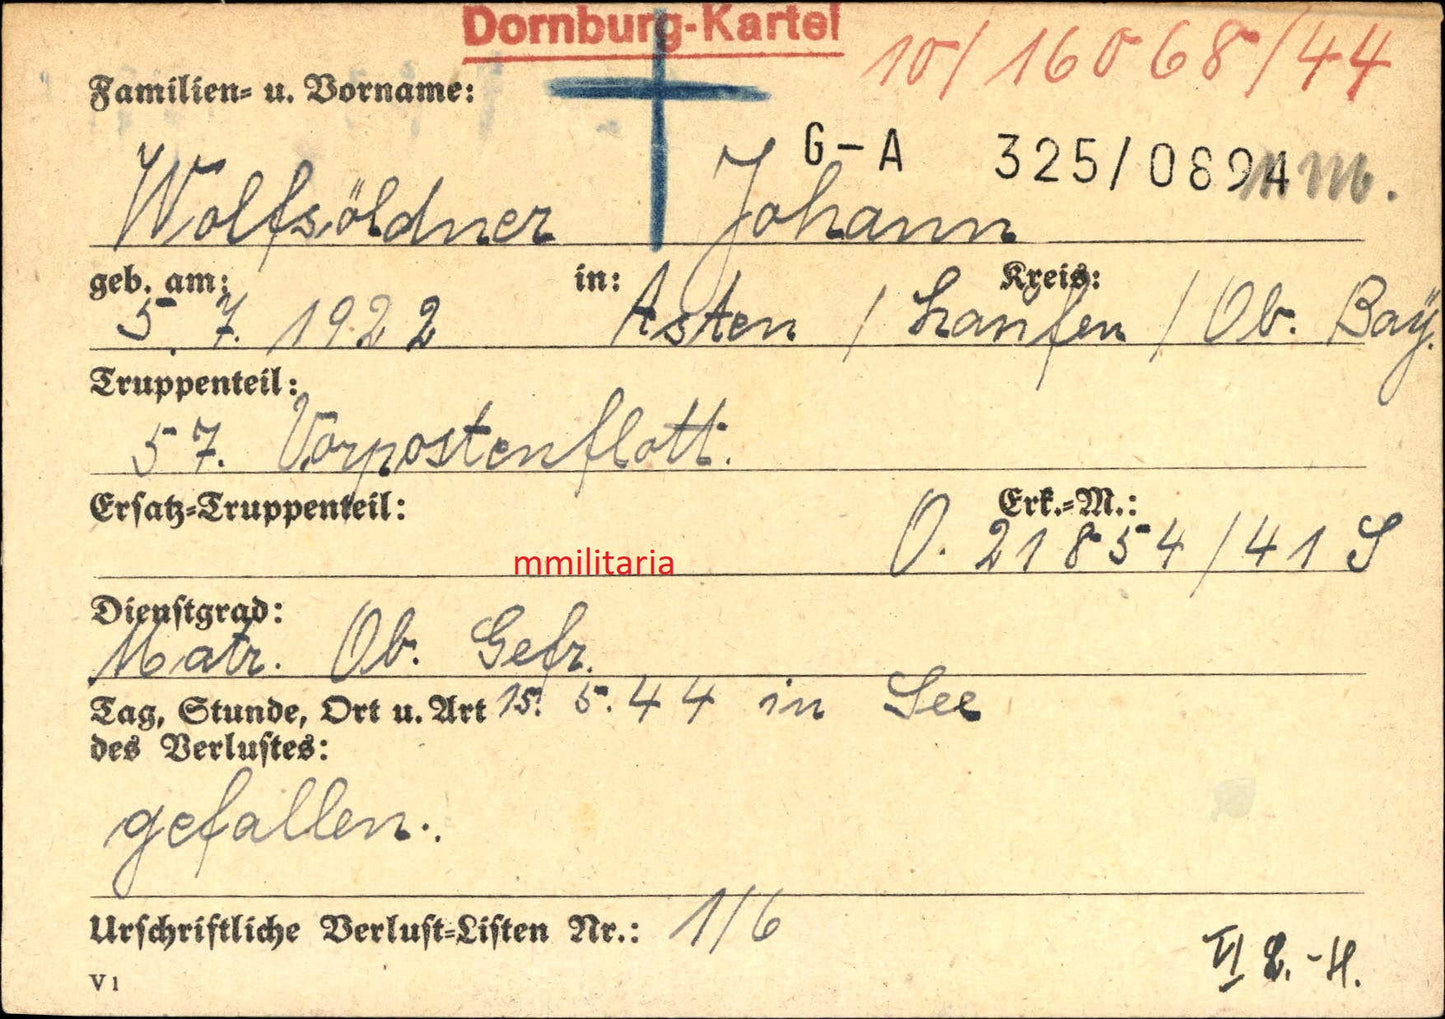 Dornburg-Kartei
10/16068/44
Familien- u. Vorname:
G-A 325/0894
Wolfsöldner Johann
geb. am: in: Kreis:
5. 7. 1922 Asten / Laufen / Ob. Bay.
Truppenteil:
57. Vorpostenflott.
Ersatz-Truppenteil: Erk.-M.:
O. 21854/41 S
mmilitaria
Dienstgrad:
Matr. Ob. Gefr.
Tag, Stunde, Ort u. Art 15. 5. 44 in See
des Verlustes:
gefallen.
Urschriftliche Verlust-Listen Nr.: 1/6
V 1